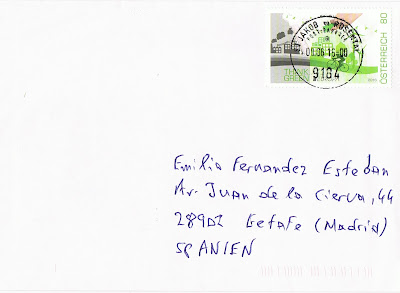 ST. JAKOB im ROSENTAL
08.06.16-00
9184
THINK
GREEN
ÖSTERREICH 80
Emilia Fernandez Esteban
Av. Juan de la Cierva, 44
28902 Getafe (Madrid)
SPANIEN